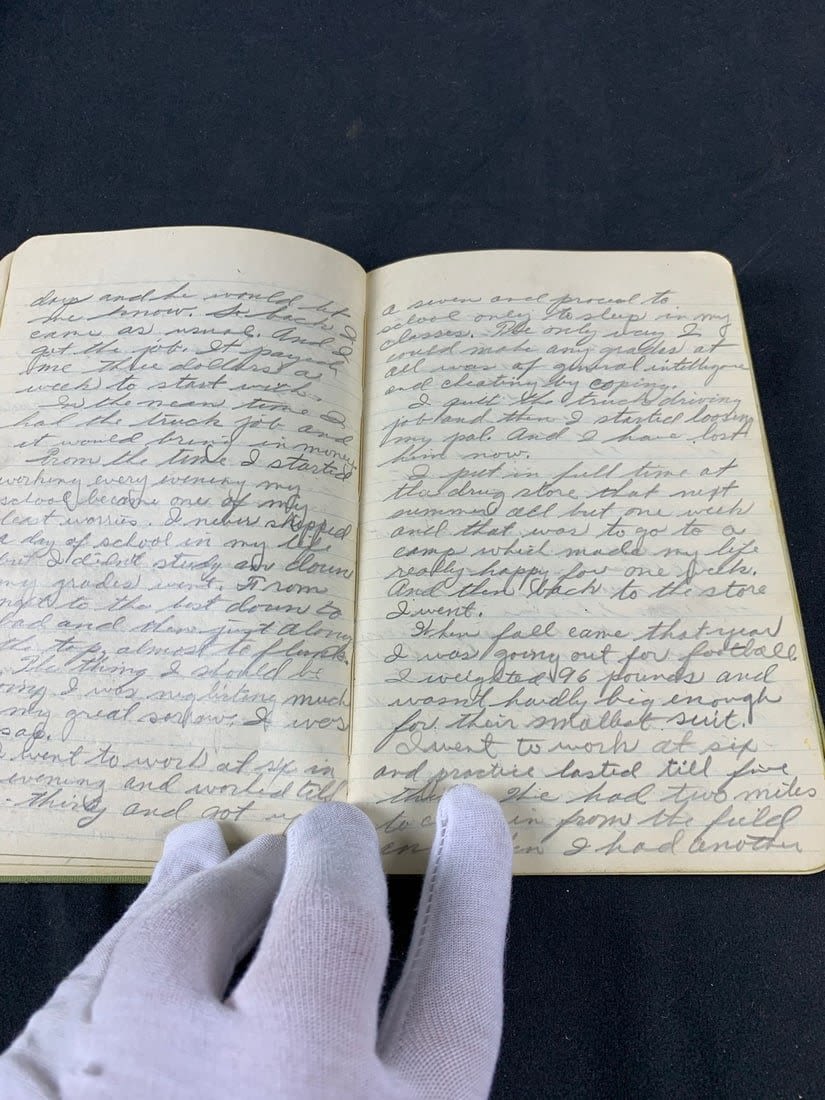 days and he would let
me know. So back I
came as usual. And I
got the job. It payed
me three dollars a
week to start with.
In the mean time I
had the truck job and
it would bring in money.
From the time I started
working every evening my
school became one of my
least worries. I never skipped
a day of school in my life
but I didn't study an down
my grades went. From
next to the best down to
bad and then just along
the top, almost to flunk.
The thing I should be
doing I was neglirting much
my great sorrow. I was
sap.
I went to work at six in
evening and worked till
thirty and got u
a seven and proceed to
school only to sleep in my
classes. The only way I
could make any grades at
all was of general intelligence
and cheating by coping.
I quit the truck driving
job and then I started loosing
my pal. And I have lost
him now.
I put in full time at
the drug store that next
summer all but one week
and that was to go to a
camp which made my life
really happy for one week.
And then back to the store
I went.
When fall came that year
I was going out for football
I weighted 96 pounds and
wasn't hardly big enough
for their smallest suit.
I went to work at six
and practice lasted till five
We had two miles
to in from the field
I had another